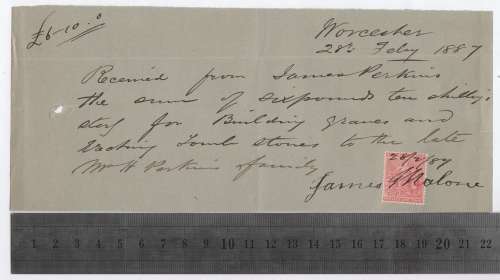 £6-10.0
Worcester
28th Feby 1887
Received from James Perkins
the sum of six pounds ten shillings
sterg for Building graves and
Erecting Tomb stones to the late
Mr H Perkins & family
28/2/87
James Malone
1 2 3 4 5 6 7 8 9 10 11 12 13 14 15 16 17 18 19 20 21 22